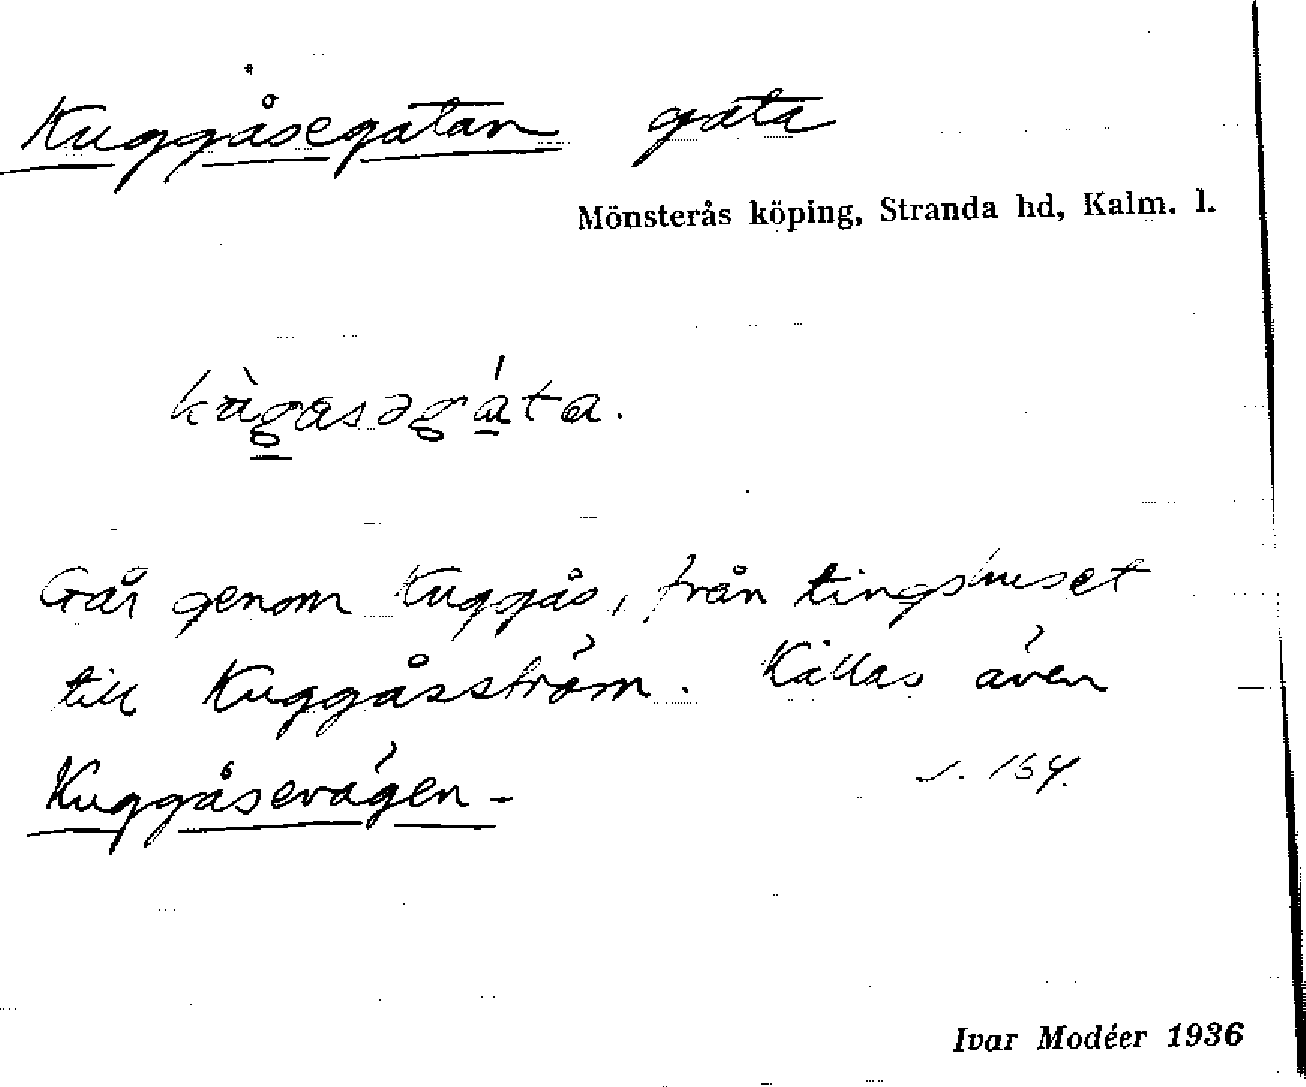 Kuggåsegatan gata
Mönsterås köping, Stranda hd, Kalm. l.
kàgasəgáta.
Går genom Kuggås, från tingshuset
till Kuggåsström. Kallas även
Kuggåsevägen -
s. 154.
Ivar Modéer 1936